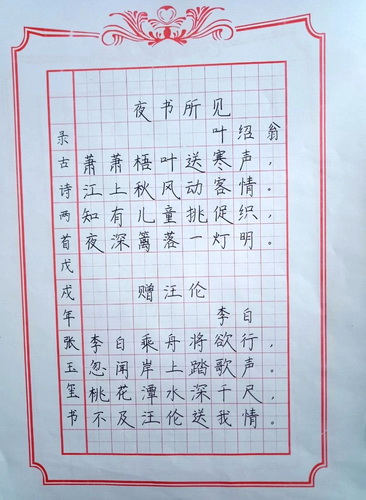 夜书所见
叶绍翁
萧萧梧叶送寒声，
江上秋风动客情。
知有儿童挑促织，
夜深篱落一灯明。
赠汪伦
李白
李白乘舟将欲行，
忽闻岸上踏歌声。
桃花潭水深千尺，
不及汪伦送我情。
录古诗两首戊戌年张玉笙书